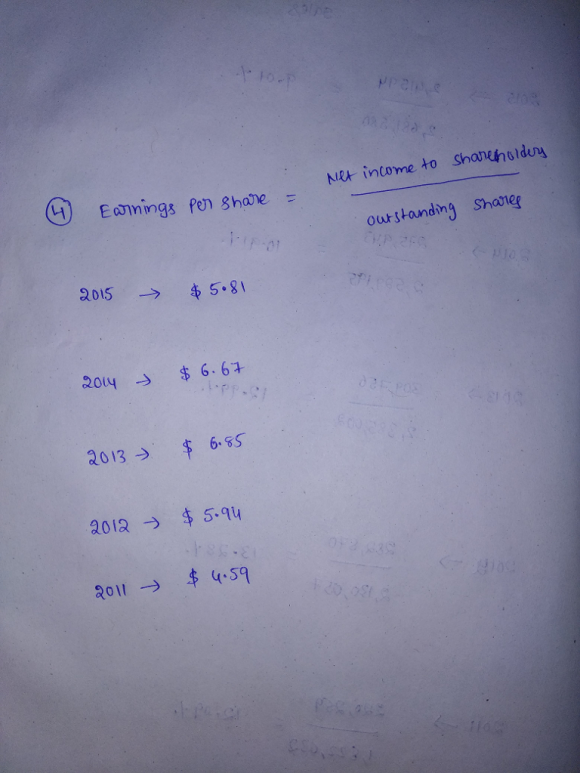 ④ Earnings Per share = Net income to shareholders
outstanding shares
2015 → $ 5.81
2014 → $ 6.67
2013 → $ 6.85
2012 → $ 5.94
2011 → $ 4.59